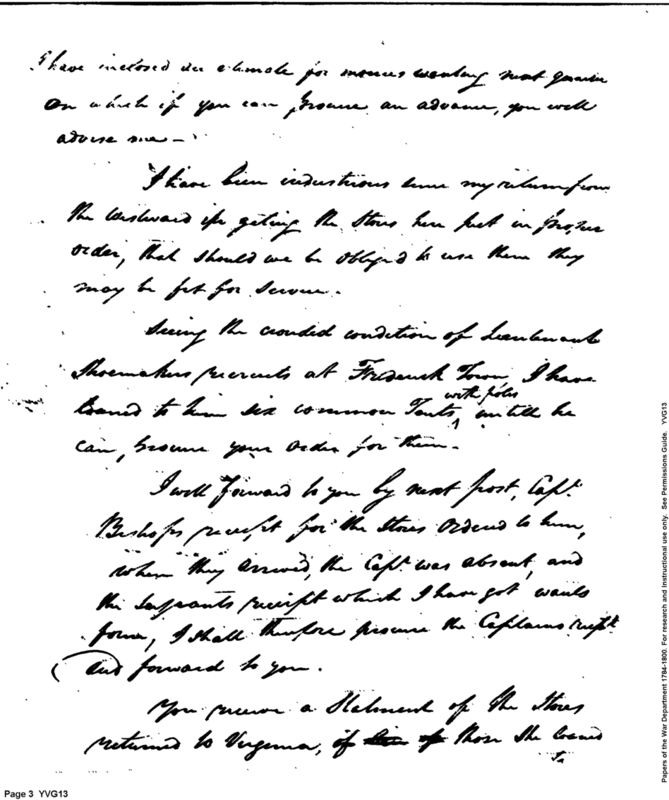 I have inclosed an estimate for monies wanting next quarter
on which if you can procure an advance, you will
advise me —
I have been industrious since my return from
the westward in geting the Stores here put in proper
order, that should we be obliged to use them they
may be fit for Service.
Seeing the crouded condition of Lieutenant
Shoemakers recruits at Frederick Town, I have
loaned to him six common Tents, with poles untill he
can, procure your order for them.
I will forward to you by next post, Capt.
Bishops receipt for the Stores ordered to him,
when they arrived, the Capt. was absent, and
the Sergeants receipt which I have got wants
form, I shall therefore procure the Captains recpt.
and forward to you.
You receive a Statment of the Stores
returned to Virginia, of those She loaned
to
Page 3 YVG13
Papers of the War Department 1784-1800. For research and Instructional use only. See Permissions Guide. YVG13